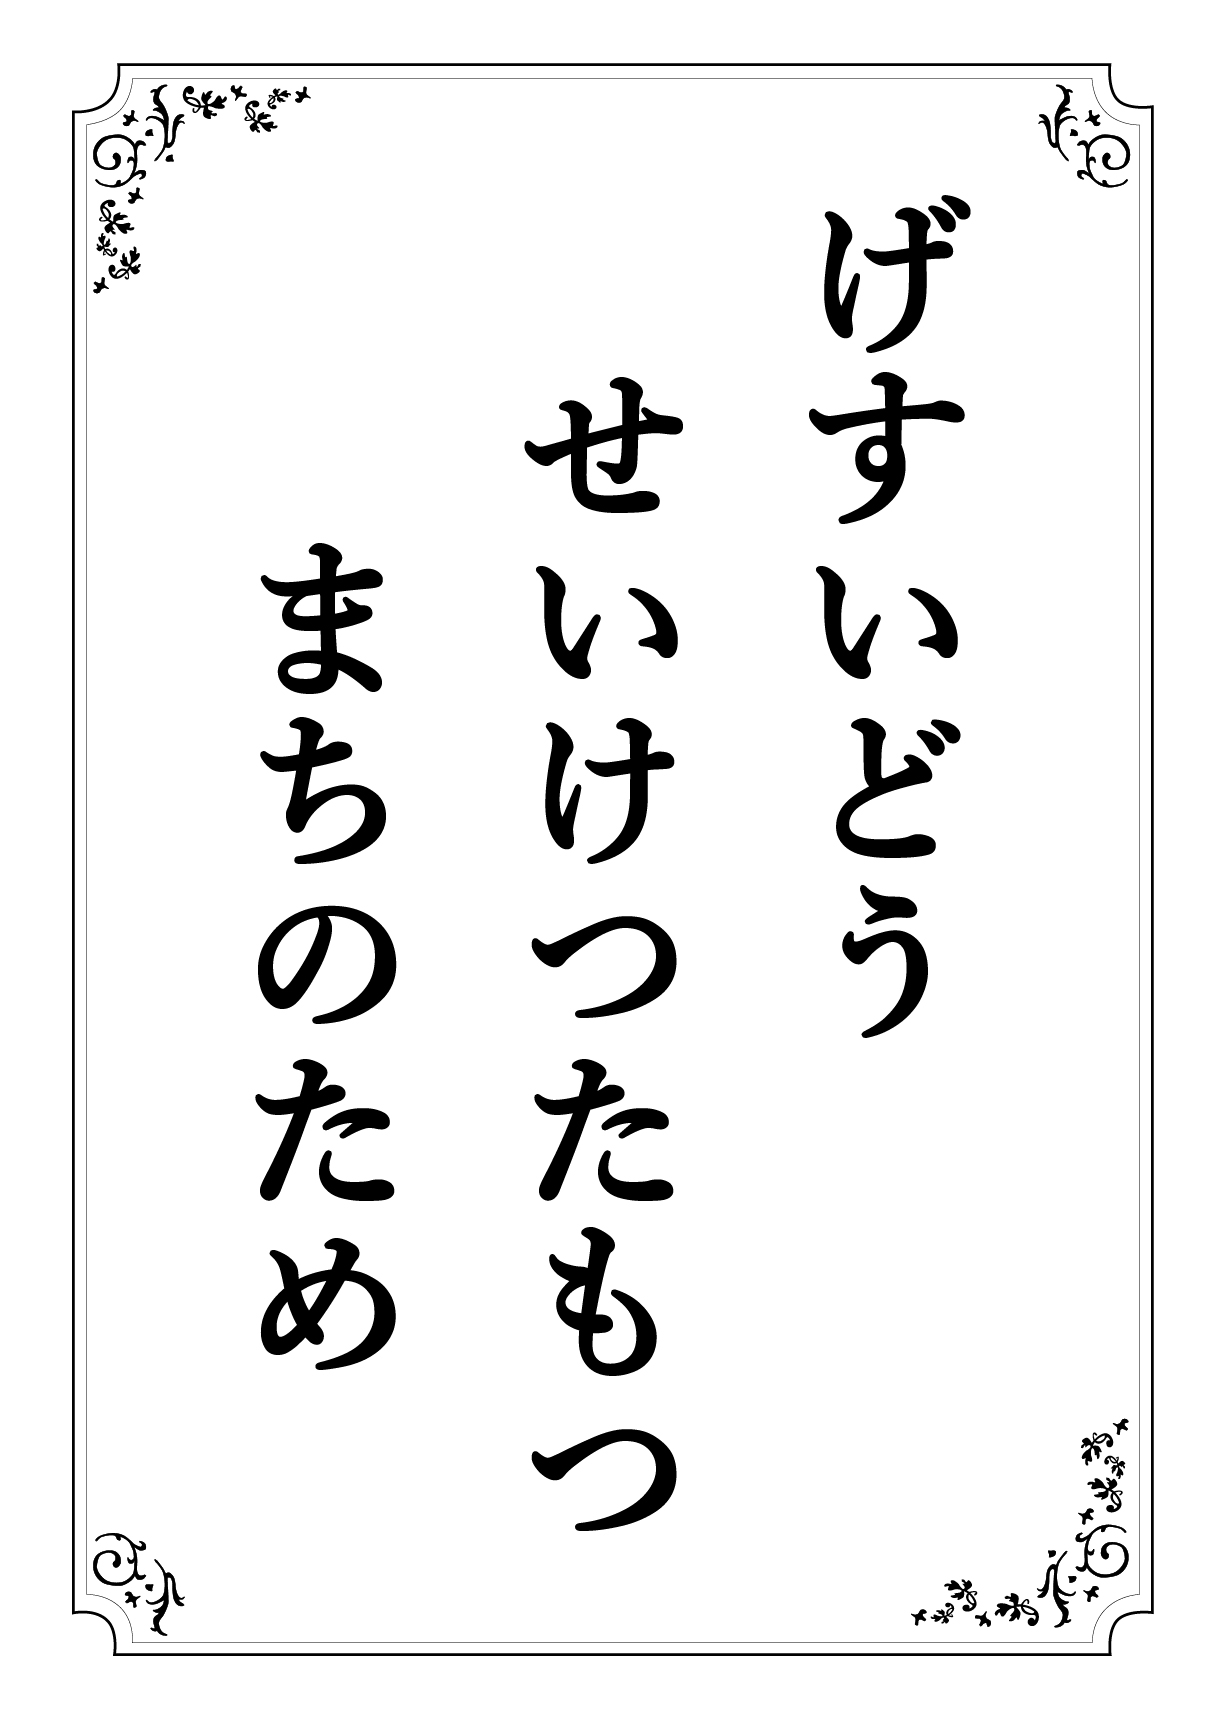 げすいどう
せいけつたもつ
まちのため